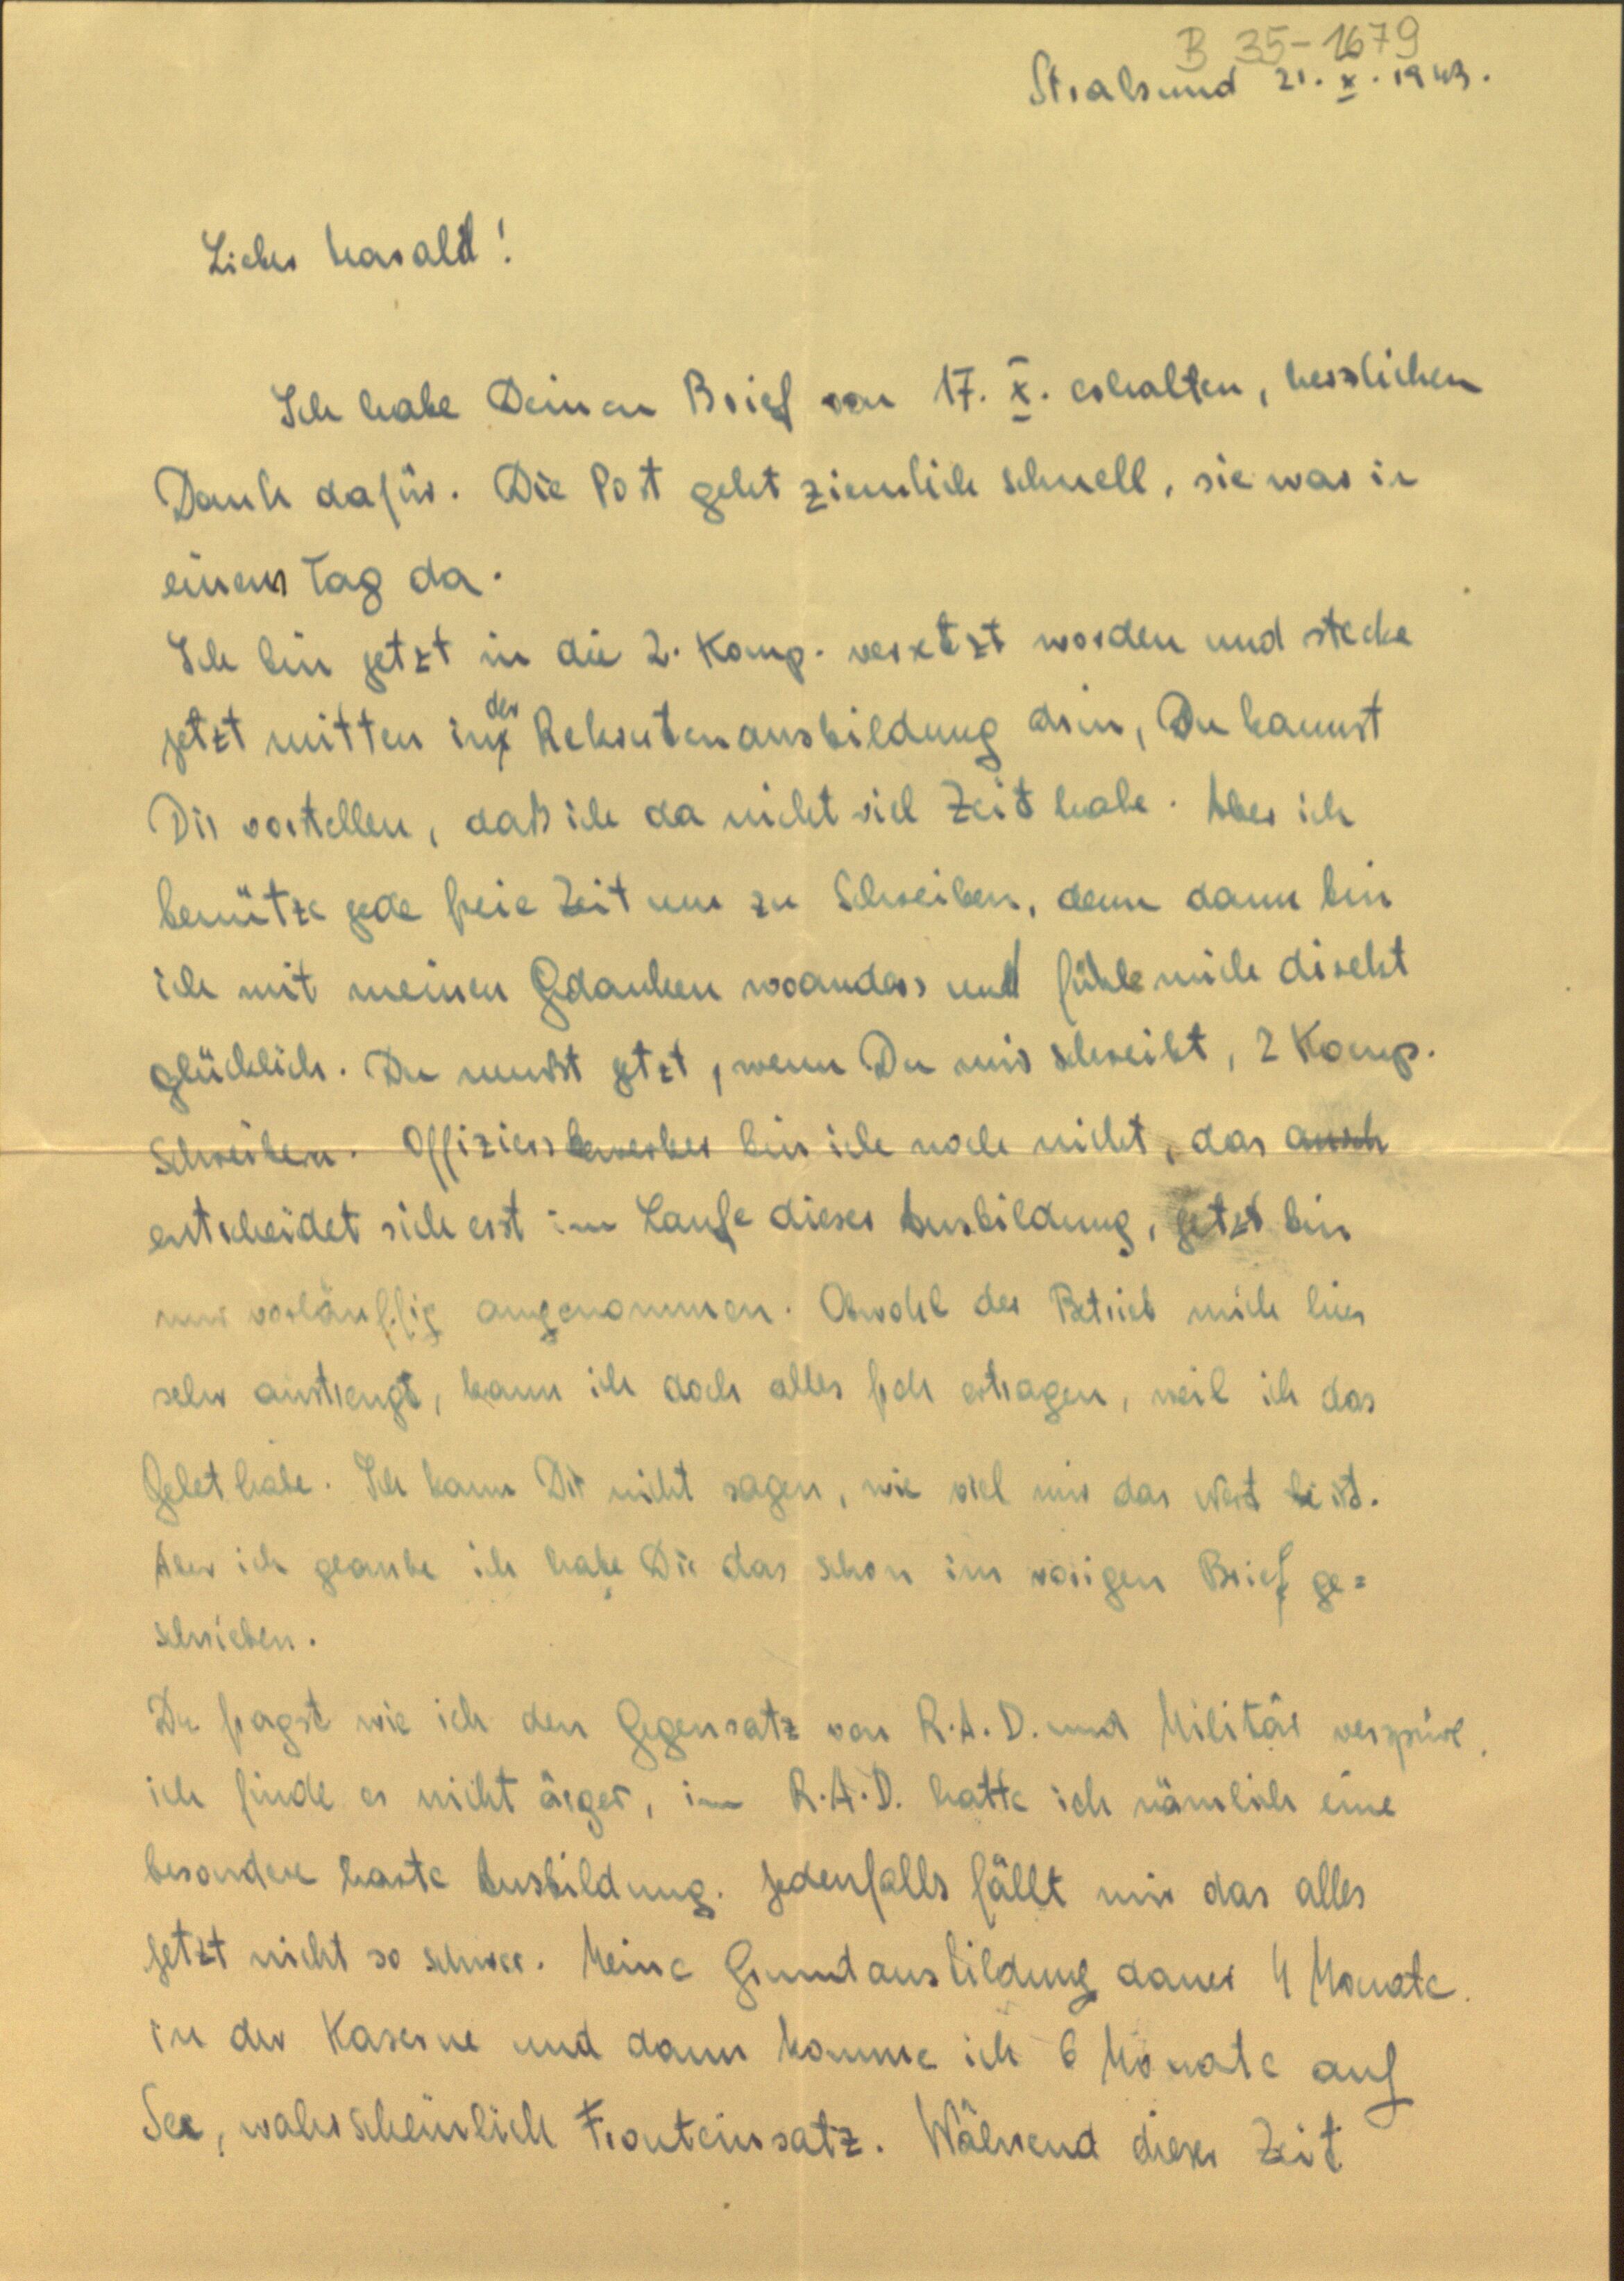 B 35-1679
Stralsund 21. X. 1943.
Lieber Harald!
Ich habe Deinen Brief von 17. X. erhalten, herzlichen
Dank dafür. Die Post geht ziemlich schnell, sie war in
einem Tag da.
Ich bin jetzt in die 2. Komp. versetzt worden und stecke
jetzt mitten in der Rekrutenausbildung drin, Du kannst
Dir vorstellen, daß ich da nicht viel Zeit habe. Aber ich
benütze jede freie Zeit um zu Schreiben, denn dann bin
ich mit meinen Gedanken woanders und fühle mich direkt
glücklich. Du mußt jetzt, wenn Du mir schreibt, 2 Komp.
Schreiben. Offiziersbewerber bin ich noch nicht, das auch
entscheidet sich erst im Laufe dieser Ausbildung, jetzt bin
nur vorläuffig angenommen. Obwohl der Betrieb mich hier
sehr anstrengt, kann ich doch alles froh ertragen, weil ich das
Gebet habe. Ich kann Dir nicht sagen, wie viel mir das Wert ist.
Aber ich glaube ich habe Dir das schon im vorigen Brief ge=
schrieben.
Du fragst wie ich den Gegensatz von R.A.D. und Militär verspüre,
ich finde es nicht ärger, im R.A.D. hatte ich nämlich eine
besondere harte Ausbildung. Jedenfalls fällt mir das alles
jetzt nicht so schwer. Meine Grundausbildung dauer 4 Monate
in der Kaserne und dann komme ich 6 Monate auf
See, wahrscheinlich Fronteinsatz. Während dieser Zeit